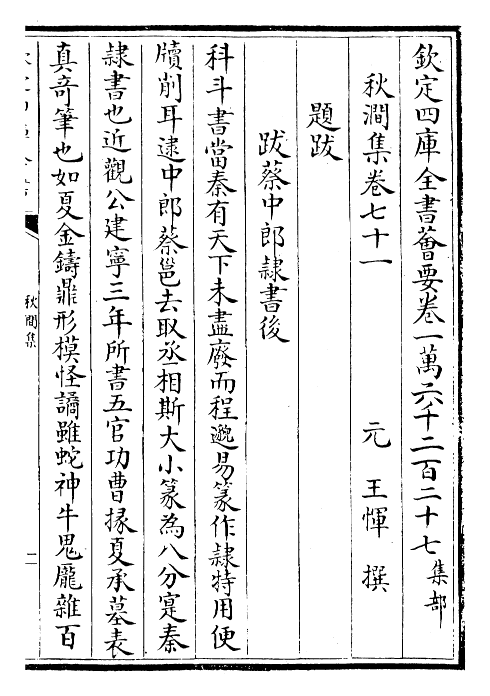 欽定四庫全書薈要卷一萬六千二百二十七集部
秋澗集卷七十一
元 王惲 撰
題跋
跋蔡中郎隸書後
科斗書當秦有天下未盡廢而程邈易篆作隸特用便
牘削耳逮中郎蔡邕去取丞相斯大小篆為八分寔秦
隸書也近觀公建寧三年所書五官功曹掾夏承墓表
真奇筆也如夏金鑄鼎形模怪譎雖蛇神牛鬼龎雜百
秋澗集
二